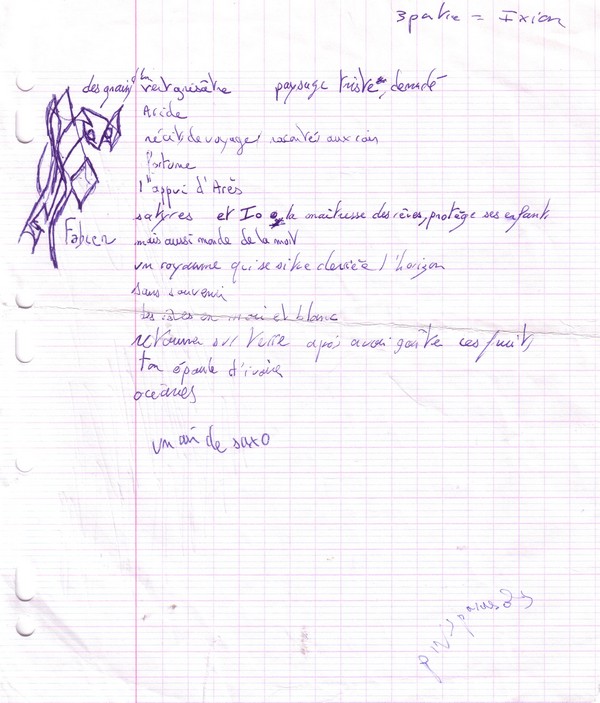 3 partie = Ixion
des grains vert grisâtre paysage triste, dénudé
Acide
récits de voyages racontés aux rois
fortune
l'appui d'Arès
satyres et Io la maîtresse des rêves, protège ses enfants
Fabien mais aussi monde de la mort
un royaume qui se situe derrière l'horizon
sans souvenir
les isles en noir et blanc
retourna sur terre après avoir goûté ces fruits
ton épaule d'ivoire
océanes
un air de saxo